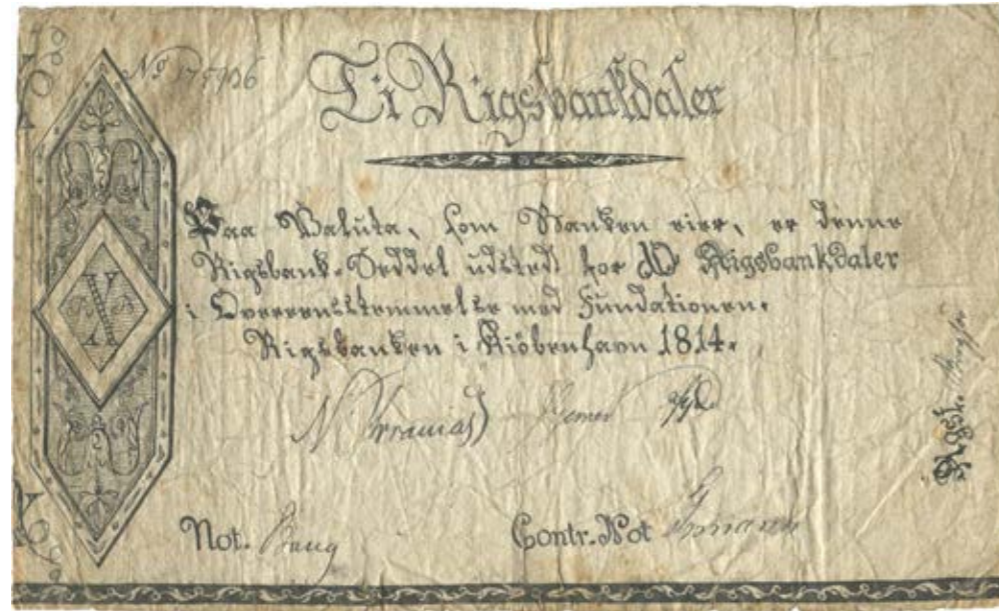 No
Ti Rigsbankdaler
Paa Valuta, som Banken eier, er denne
Rigsbank-Seddel udstedt for 10 Rigsbankdaler
i Overeensstemmelse med Fundationen.
Rigsbanken i Kiöbenhavn 1814.
Not.
Contr. Not
Rgst.
X